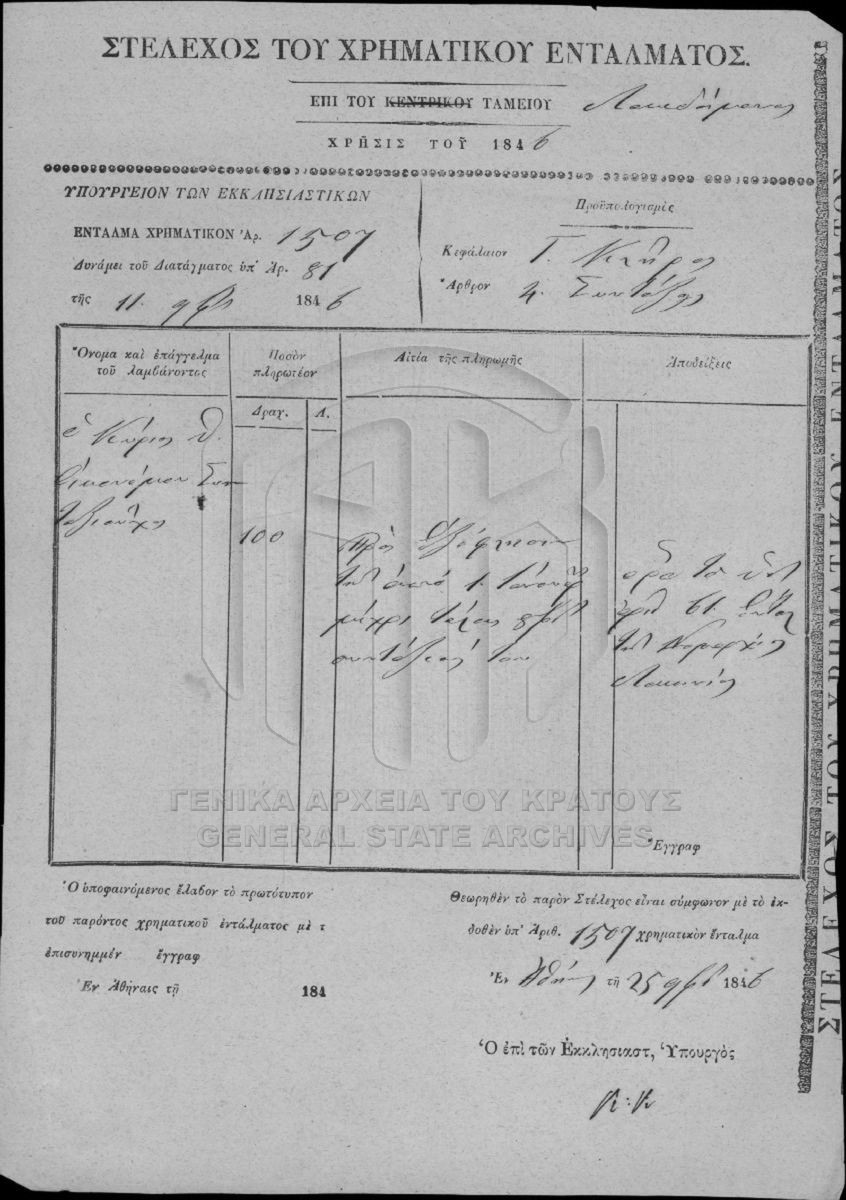 ΣΤΕΛΕΧΟΣ ΤΟΥ ΧΡΗΜΑΤΙΚΟΥ ΕΝΤΑΛΜΑΤΟΣ.
ΕΠΙ ΤΟΥ ΚΕΝΤΡΙΚΟΥ ΤΑΜΕΙΟΥ Λακεδαίμονος
ΧΡΗΣΙΣ ΤΟΥ 1846
ΥΠΟΥΡΓΕΙΟΝ ΤΩΝ ΕΚΚΛΗΣΙΑΣΤΙΚΩΝ
ΕΝΤΑΛΜΑ ΧΡΗΜΑΤΙΚΟΝ Ἀρ. 1507
Δυνάμει τοῦ Διατάγματος ὑπ' Ἀρ. 81
τῆς 11. 9βρ 1846
Προϋπολογισμὸς
Κεφάλαιον Γ. Κλῆρος
Ἄρθρον 4. Συντάξεις
Ὄνομα καὶ ἐπάγγελμα
τοῦ λαμβάνοντος
Ποσὸν
πληρωτέον
Αἰτία τῆς πληρωμῆς
Ἀποδείξεις
Δραχ. Λ.
ὁ Κύριος Π.
Οἰκονόμου Συν
ταξιοῦχος
100
Πρὸς ἐξόφλησιν
τῆς ἀπὸ 1. Ἰανουαρ
μέχρι τέλους 8βρ
συντάξεώς του
ὅρα τὸ ὑπ
ἀριθ 61 ἔνταλ
τῆς Νομαρχίας
Λακωνίας
Ἐγγραφ
ΓΕΝΙΚΑ ΑΡΧΕΙΑ ΤΟΥ ΚΡΑΤΟΥΣ
GENERAL STATE ARCHIVES
Ὁ ὑποφαινόμενος ἔλαβον τὸ πρωτότυπον
τοῦ παρόντος χρηματικοῦ ἐντάλματος μὲ τ
ἐπισυνημμέν ἔγγραφ
Ἐν Ἀθήναις τῇ 184
Θεωρηθὲν τὸ παρὸν Στέλεχος εἶναι σύμφωνον μὲ τὸ ἐκ-
δοθὲν ὑπ' Ἀριθ. 1507 χρηματικὸν ἔνταλμα
Ἐν Ἀθήναις τῇ 25 9βρ 1846
Ὁ ἐπὶ τῶν Ἐκκλησιαστ, Ὑπουργὸς
ΣΤΕΛΕΧΟΣ ΤΟΥ ΧΡΗΜΑΤΙΚΟΥ ΕΝΤΑΛΜΑΤΟΣ